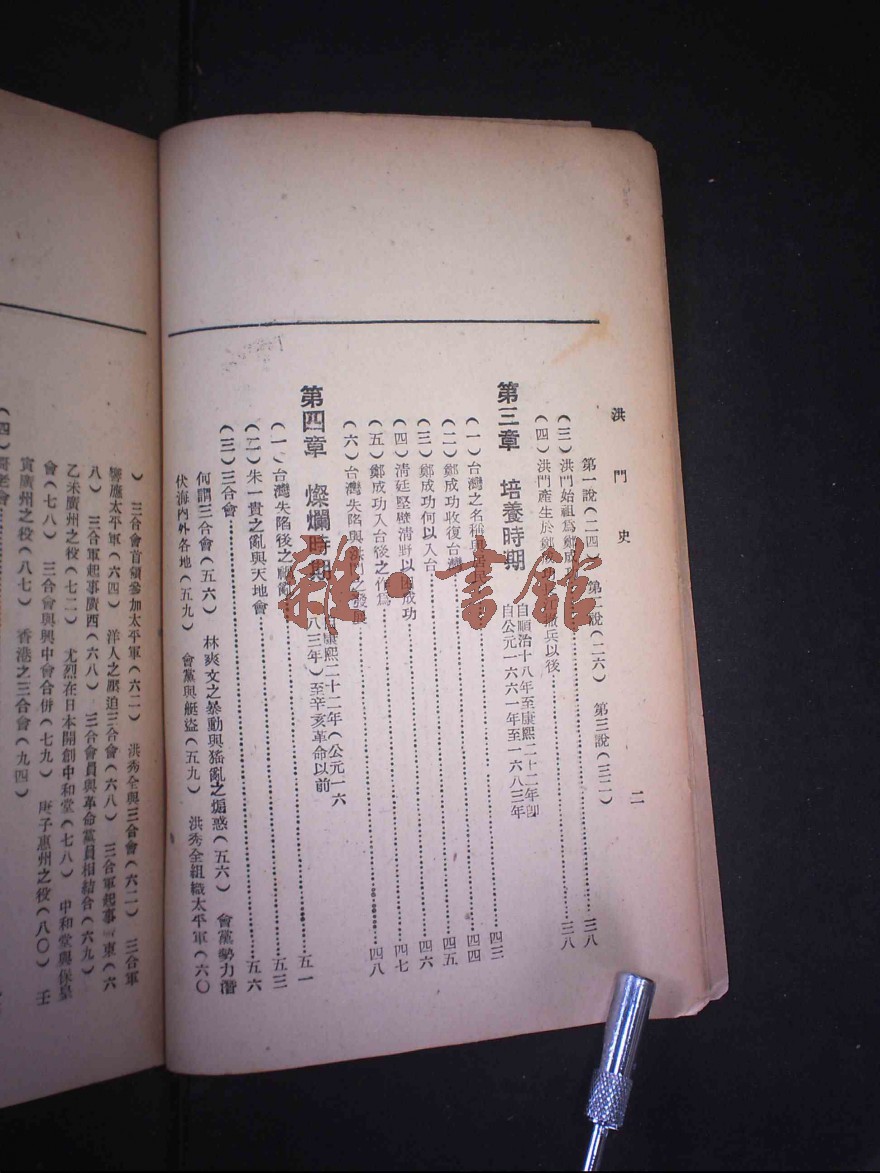 洪門史
二
第一說(二四) 第二說(二六) 第三說(三二)
(三)洪門始祖爲鄭成功……三八
(四)洪門產生於鄭成功 撤兵以後……三八
第三章 培養時期 自順治十八年至康熙二十二年卽
自公元一六六一年至一六八三年
(一)台灣之名稱 ……四三
(二)鄭成功收復台灣……四四
(三)鄭成功何以入台……四五
(四)清廷堅壁清野以困成功……四六
(五)鄭成功入台後之作爲……四七
(六)台灣失陷與洪門之發展……四八
第四章 燦爛時期 自康熙二十二年(公元一六
八三年)至辛亥革命以前
……五一
(一)台灣失陷後之 ……五三
(二)朱一貴之亂與天地會……五六
(三)三合會……
何謂三合會(五六) 林爽文之暴動與猺亂之煽惑(五六) 會黨勢力潛
伏海內外各地(五九) 會黨與艇盜(五九) 洪秀全組織太平軍(六〇
) 三合會首領參加太平軍(六二) 洪秀全與三合會(六二) 三合軍
響應太平軍(六四) 洋人之壓迫三合會(六八) 三合軍起事 東(六
八) 三合軍起事廣西(六八) 三合會員與革命黨員相結合(六九)
乙未廣州之役(七二) 尤烈在日本開創中和堂(七八) 中和堂與保皇
會(七八) 三合會與興中會合併(七九) 庚子惠州之役(八〇) 壬
寅廣州之役(八七) 香港之三合會(九四)
(四)哥老會……
雜·書館